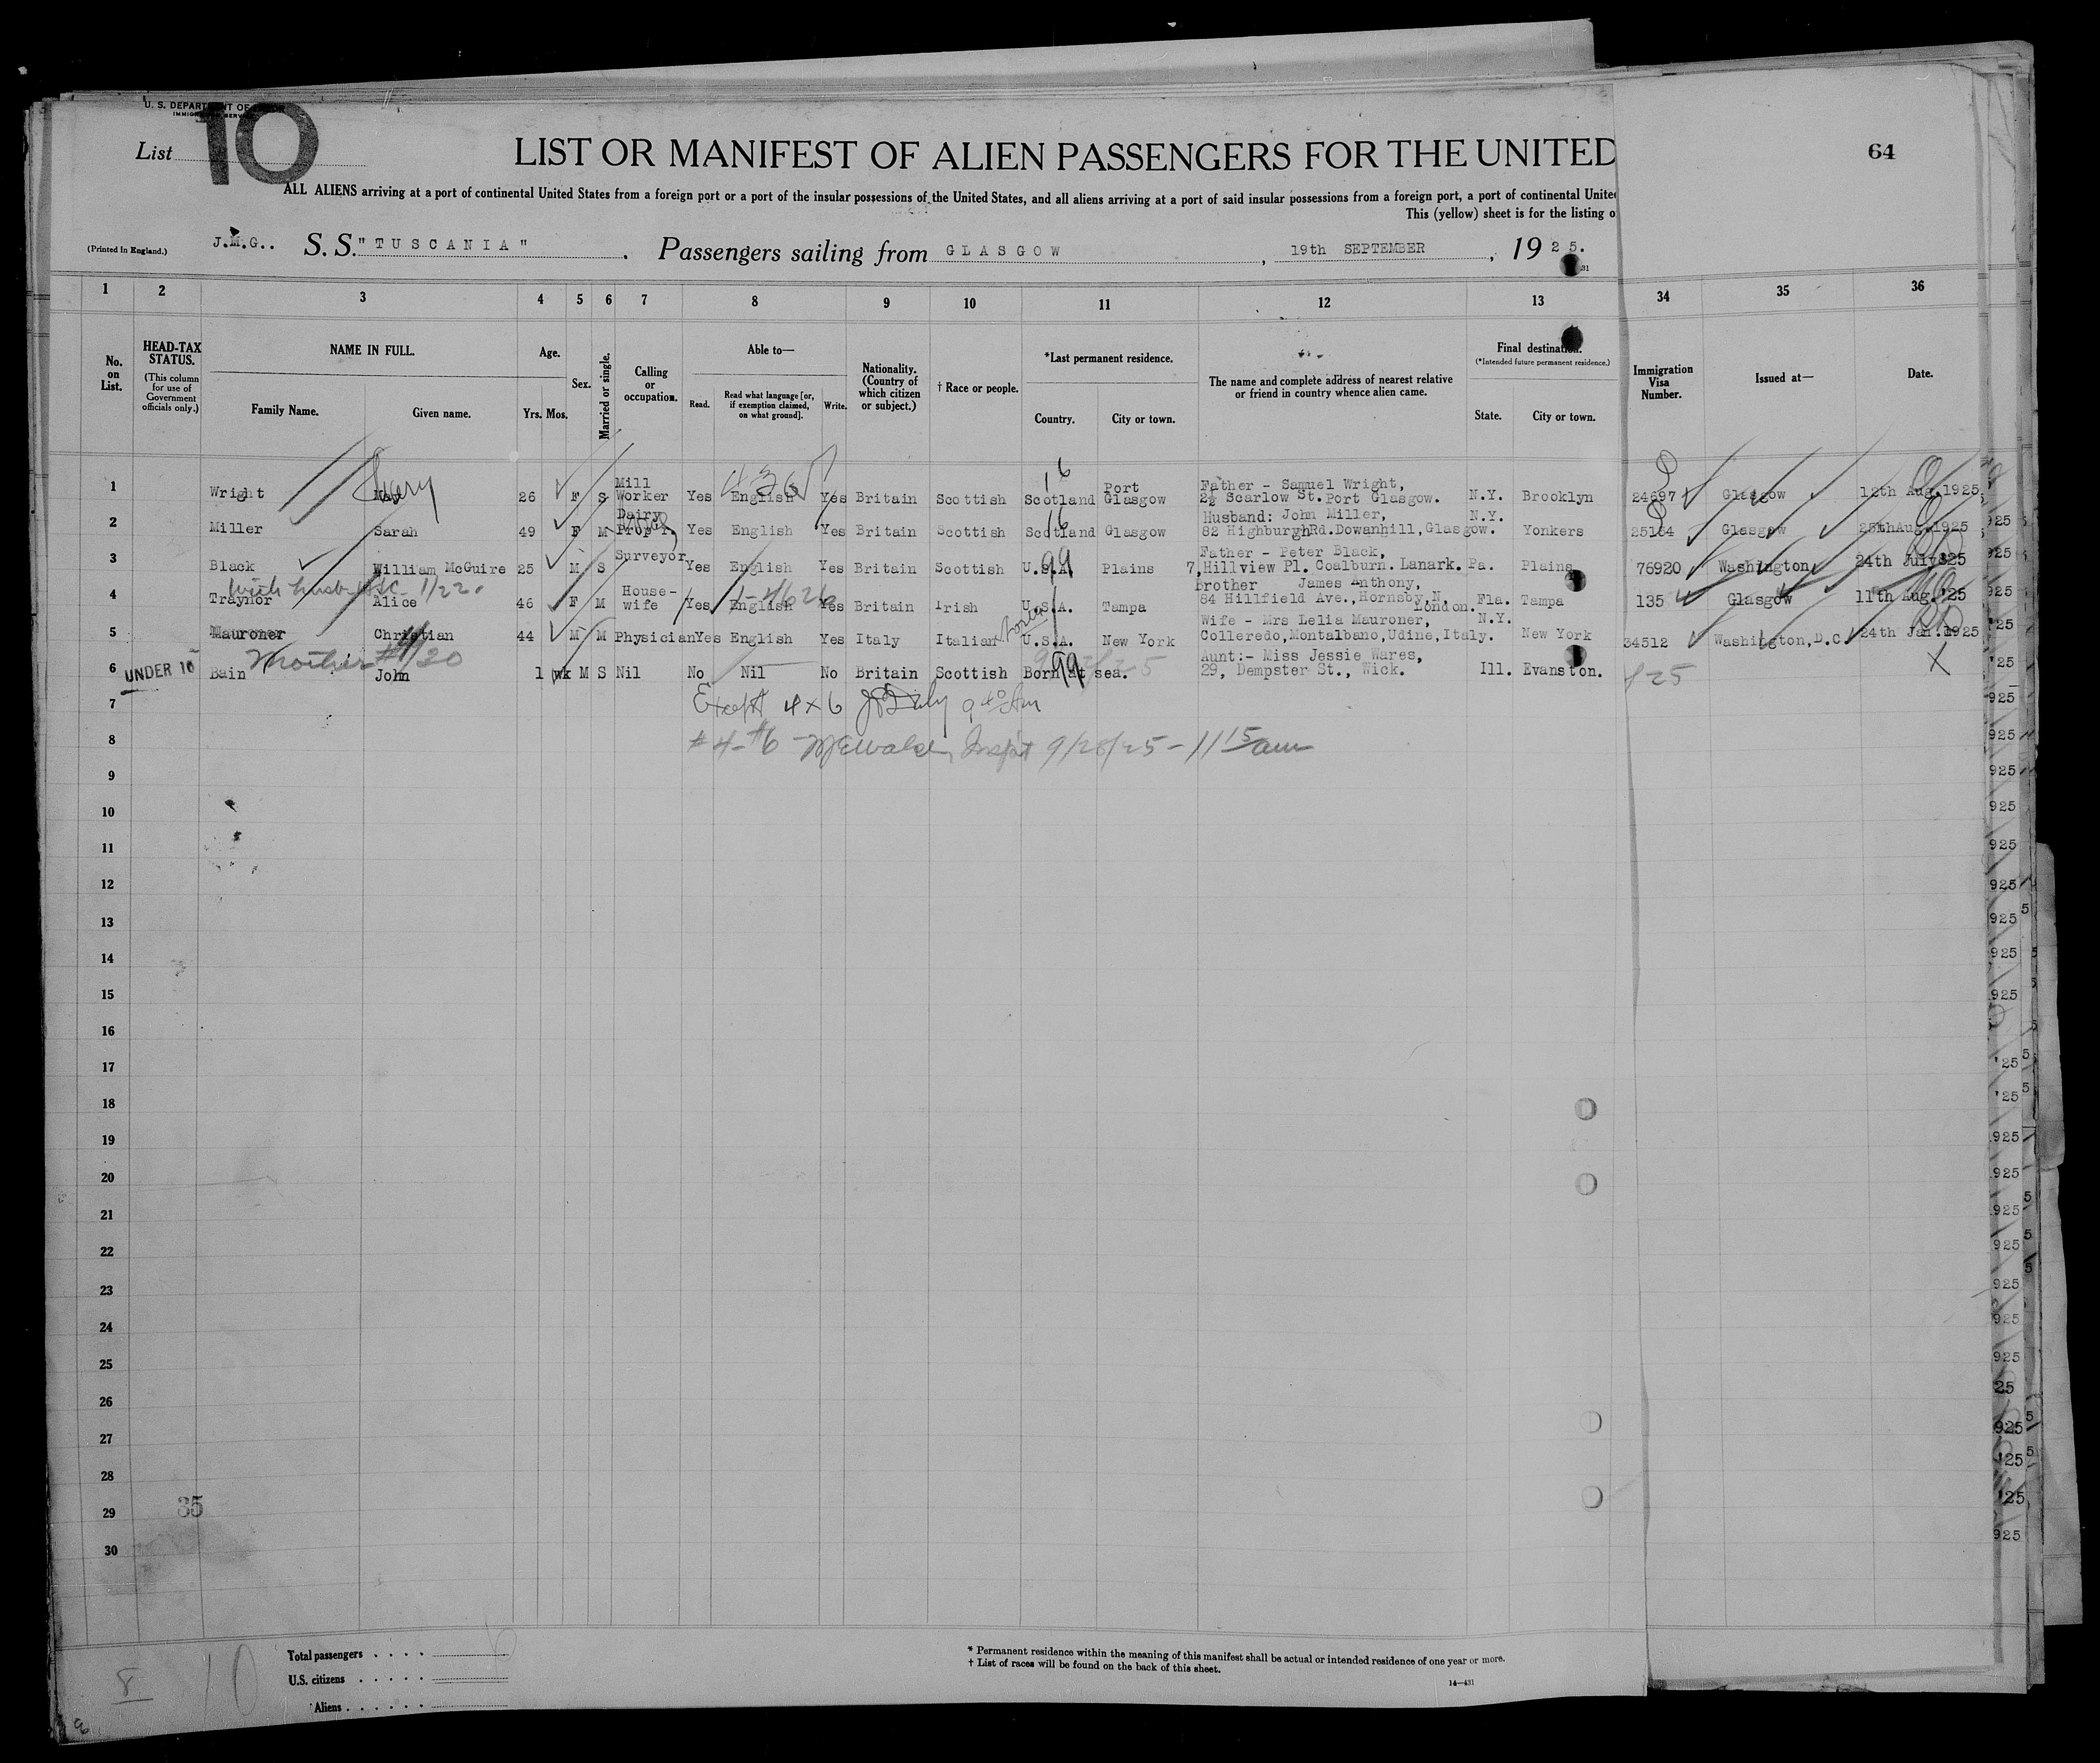 U. S. DEPARTMENT OF LABOR
IMMIGRATION SERVICE
List 10
LIST OR MANIFEST OF ALIEN PASSENGERS FOR THE UNITED
64
ALL ALIENS arriving at a port of continental United States from a foreign port or a port of the insular possessions of the United States, and all aliens arriving at a port of said insular possessions from a foreign port, a port of continental Unite
This (yellow) sheet is for the listing o
(Printed in England.) J.M.G.. S. S. "TUSCANIA". Passengers sailing from GLASGOW, 19th SEPTEMBER, 1925.
1 2 3 4 5 6 7 8 9 10 11 12 13 34 35 36
No. on List.
HEAD-TAX STATUS. (This column for use of Government officials only.)
NAME IN FULL. Family Name. Given name.
Age. Yrs. Mos.
Sex.
Married or single.
Calling or occupation.
Able to— Read. Read what language [or, if exemption claimed, on what ground]. Write.
Nationality. (Country of which citizen or subject.)
† Race or people.
*Last permanent residence. Country. City or town.
The name and complete address of nearest relative or friend in country whence alien came.
Final destination. (*Intended future permanent residence.) State. City or town.
Immigration Visa Number.
Issued at—
Date.
1 Wright Mary 26 F S Mill Worker Yes English Yes Britain Scottish Scotland Port Glasgow Father - Samuel Wright, 2½ Scarlow St. Port Glasgow. N.Y. Brooklyn 24697 Glasgow 12th Aug.1925
2 Miller Sarah 49 F M Dairy Prop'r. Yes English Yes Britain Scottish Scotland Glasgow Husband: John Miller, 82 HighburghRd.Dowanhill,Glasgow. N.Y. Yonkers 25164 Glasgow 25thAug.1925
3 Black William McGuire 25 M S Surveyor Yes English Yes Britain Scottish U.S.A. Plains Father - Peter Black, 7,Hillview Pl. Coalburn. Lanark. Pa. Plains 76920 Washington 24th July 1925
4 Traynor Alice 46 F M House-wife Yes English Yes Britain Irish U.S.A. Tampa Brother James Anthony, 84 Hillfield Ave.,Hornsby,N. London. Fla. Tampa 135 Glasgow 11th Aug.'25
5 Mauroner Christian 44 M M Physician Yes English Yes Italy Italian U.S.A. New York Wife - Mrs Lelia Mauroner, Colleredo,Montalbano,Udine,Italy. N.Y. New York 34512 Washington,D.C. 24th Jan.1925
UNDER 16
6 Bain John 1 wk M S Nil No Nil No Britain Scottish Born at sea. Aunt:- Miss Jessie Wares, 29, Dempster St., Wick. Ill. Evanston.
7
8 #4-#6 9/28/25 - 11 15 am
9
10
11
12
13
14
15
16
17
18
19
20
21
22
23
24
25
26
27
28
29 35
30
Total passengers
U.S. citizens
Aliens
* Permanent residence within the meaning of this manifest shall be actual or intended residence of one year or more.
† List of races will be found on the back of this sheet.
14—431
8
10